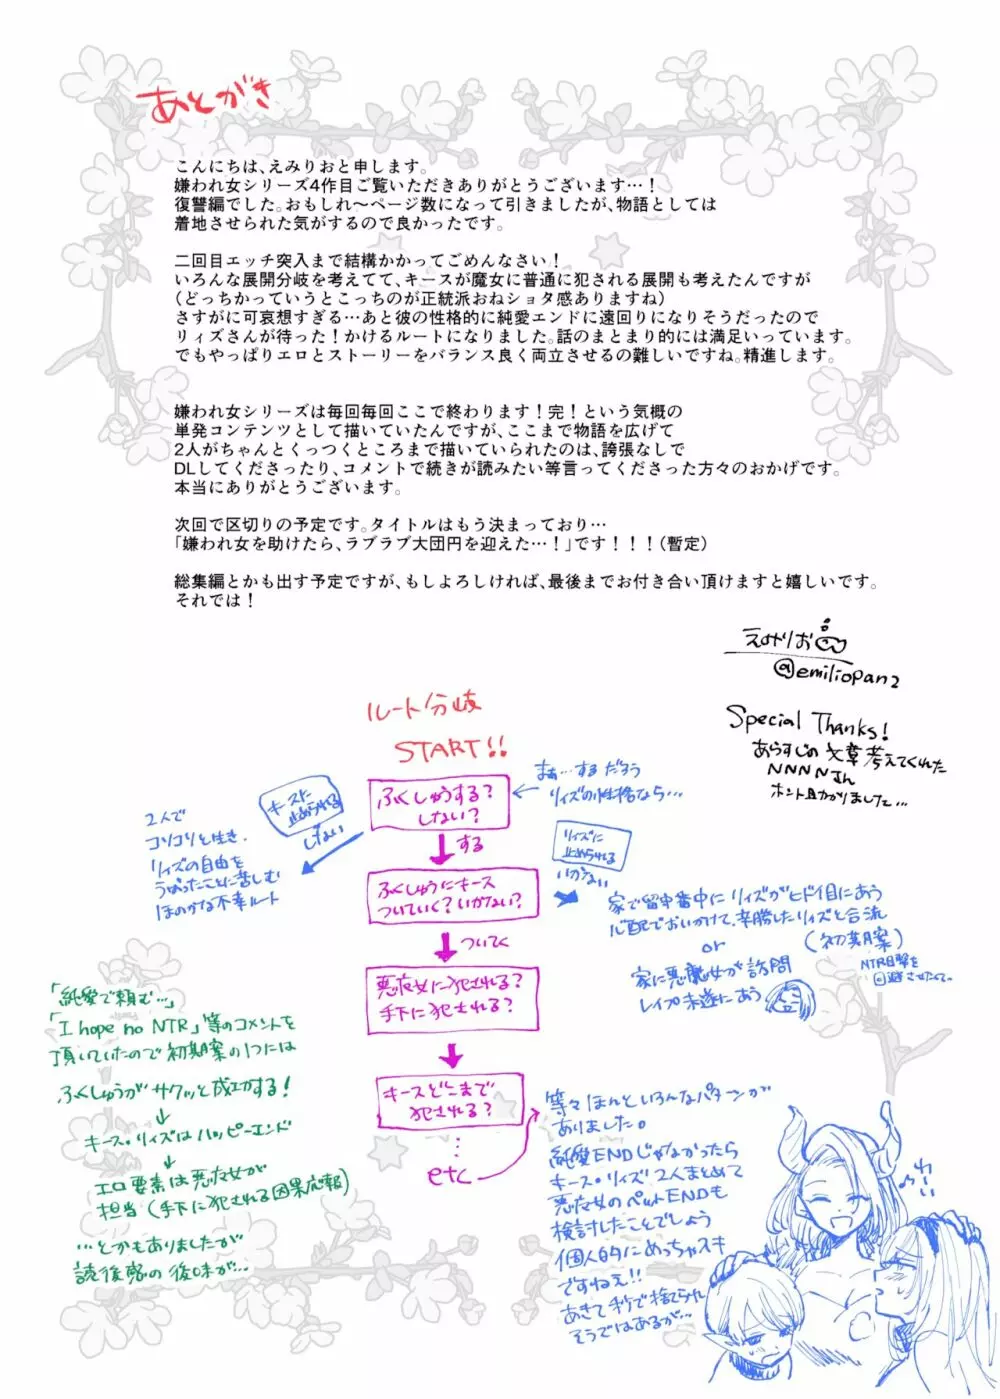 あとがき
こんにちは、えみりおと申します。
嫌われ女シリーズ4作目ご覧いただきありがとうございます…！
復讐編でした。おもしれ〜ページ数になって引きましたが、物語としては
着地させられた気がするので良かったです。
二回目エッチ突入まで結構かかってごめんなさい！
いろんな展開分岐を考えてて、キースが魔女に普通に犯される展開も考えたんですが
（どっちかっていうとこっちのが正統派おねショタ感ありますね）
さすがに可哀想すぎる…あと彼の性格的に純愛エンドに遠回りになりそうだったので
リィズさんが待った！かけるルートになりました。話のまとまり的には満足いっています。
でもやっぱりエロとストーリーをバランス良く両立させるの難しいですね。精進します。
嫌われ女シリーズは毎回毎回ここで終わります！完！という気概の
単発コンテンツとして描いていたんですが、ここまで物語を広げて
2人がちゃんとくっつくところまで描いていられたのは、誇張なしで
DLしてくださったり、コメントで続きが読みたい等言ってくださった方々のおかげです。
本当にありがとうございます。
次回で区切りの予定です。タイトルはもう決まっており…
「嫌われ女を助けたら、ラブラブ大団円を迎えた…！」です！！！（暫定）
総集編とかも出す予定ですが、もしよろしければ、最後までお付き合い頂けますと嬉しいです。
それでは！
えみりお
@emiliopan2
Special Thanks!
あらすじの文章考えてくれた
NNNNさん
ホント助かりました…
ルート分岐
START!!
ふくしゅうする？
しない？
まぁ…するだろう
リィズの性格なら…
キースに
止められる
しない
2人で
コソコソと生き、
リィズの自由を
うばったことに苦しむ
ほのかな不幸ルート
する
ふくしゅうにキース
ついていく？いかない？
リィズに
止められる
いかない
家で留守番中にリィズがヒドイ目にあう
心配でおいかけて、辛勝したリィズと合流
or
(初期案)
NTR目撃を
回避させたくて。
家に悪魔女が訪問
レイプ未遂にあう
ついてく
悪魔女に犯される？
手下に犯される？
キースどこまで
犯される？
etc
「純愛で頼む…」
「I hope no NTR」等のコメントを
頂いていたので初期案の1つには
ふくしゅうがサクッと成功する！
キース・リィズはハッピーエンド
エロ要素は悪魔女が
担当(手下に犯される因果応報)
…とかもありましたが
読後感の後味が…
等々ほんといろんなパターンが
ありました。
純愛ENDじゃなかったら
キース・リィズ2人まとめて
悪魔女のペットENDも
検討したことでしょう
個人的にめっちゃスキ
ですねぇ!!
あきて秒で捨てられ
そうではあるが…